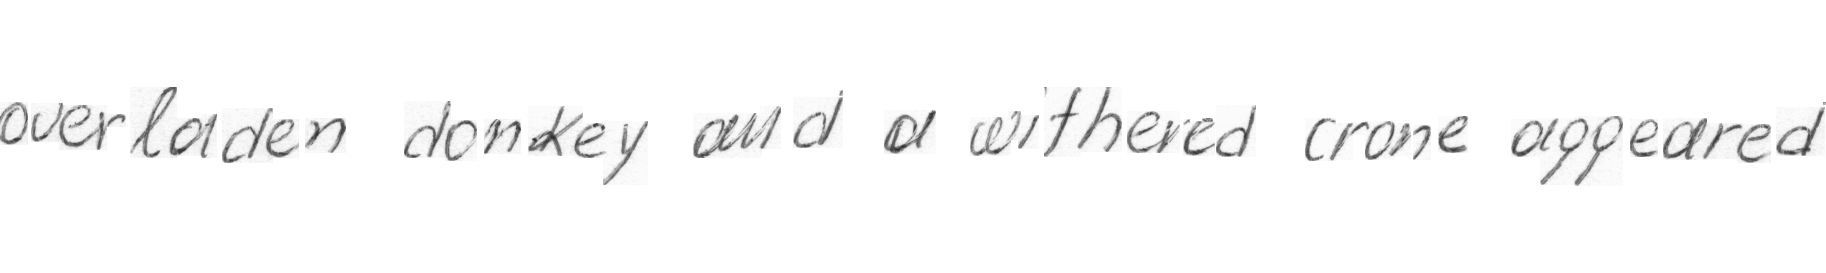 overladen donkey and a withered crone appeared